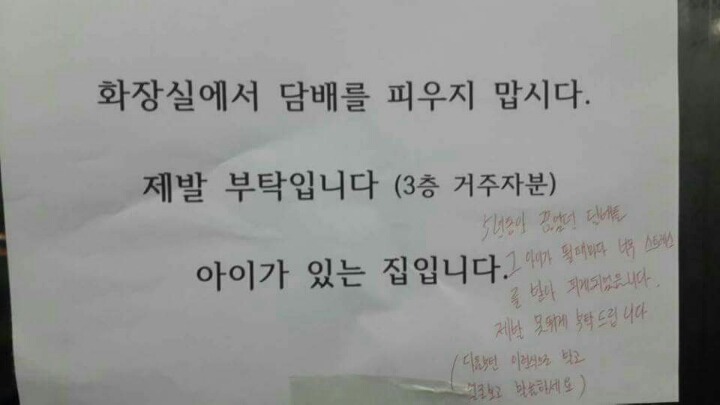 화장실에서 담배를 피우지 맙시다.
제발 부탁입니다 (3층 거주자분)
아이가 있는 집입니다.
5년동안 끊었던 담배를
그 아이가 뛸때마다 너무 스트레스
를 받아 피게되었읍니다.
제발 못뛰게 부탁드립니다
(다음부턴 이런식으로 말고
얼굴보고 말씀하세요)